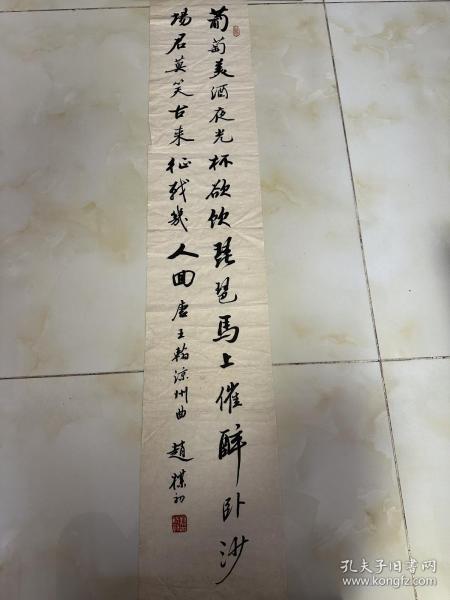 葡萄美酒夜光杯欲饮琵琶馬上催醉卧沙
場君莫笑古来征战幾人回唐王翰涼州曲
趙樸初
孔夫子旧书网
www.kongfz.com